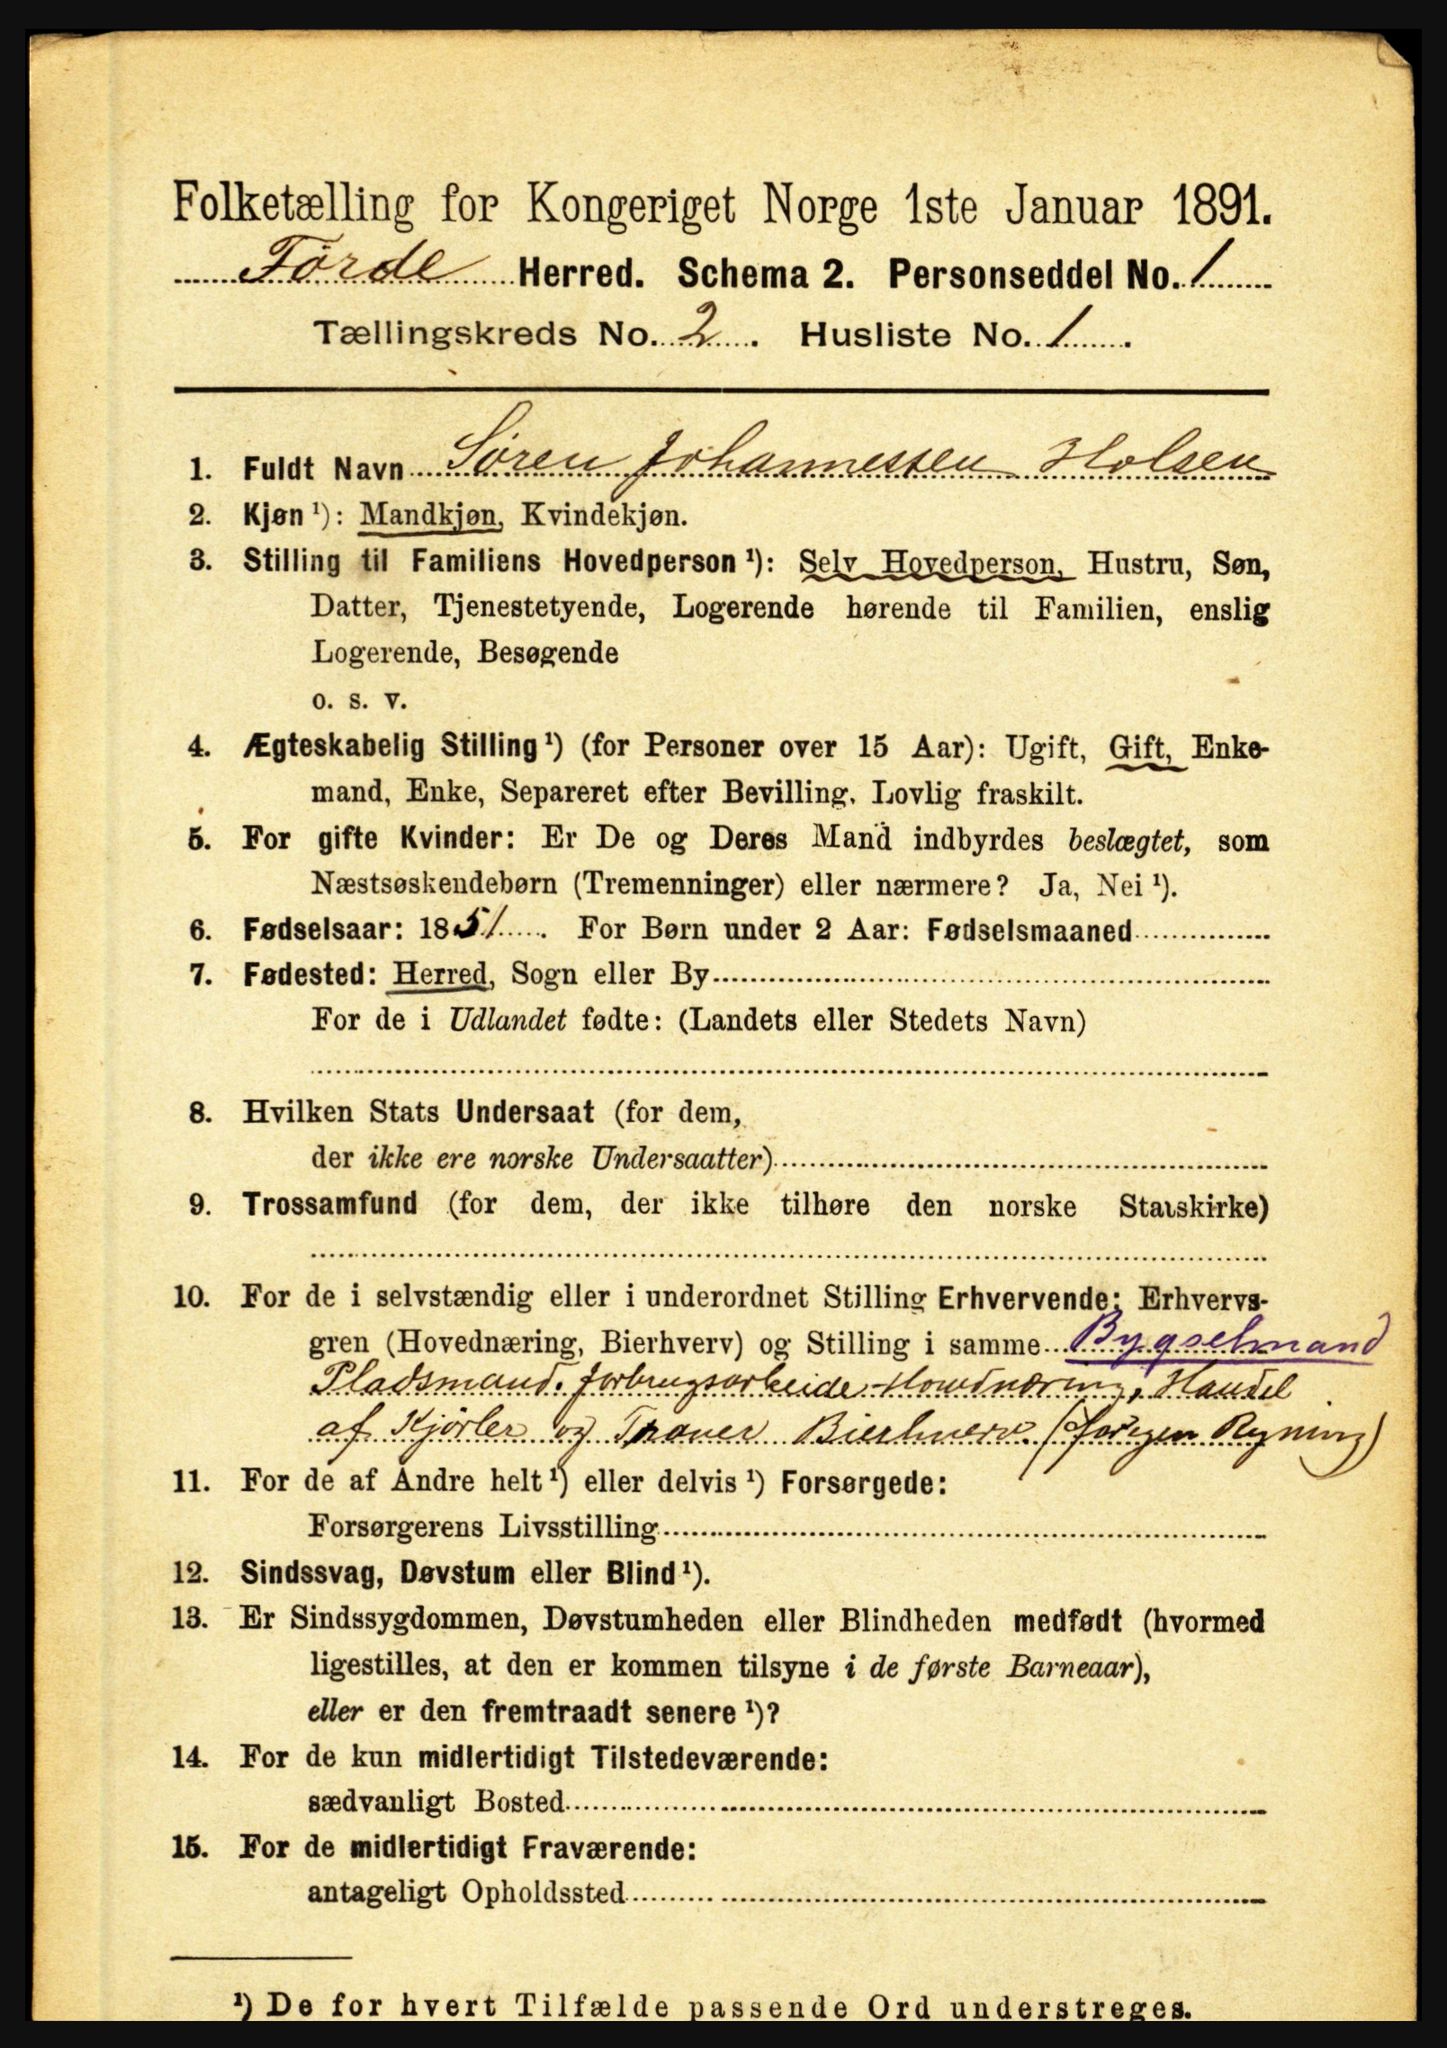 Folketælling for Kongeriget Norge 1ste Januar 1891.
Førde Herred. Schema 2. Personseddel No. 1
Tællingskreds No. 2. Husliste No. 1.
1. Fuldt Navn Søren Johannessen Holsen
2. Kjøn ¹): Mandkjøn, Kvindekjøn.
3. Stilling til Familiens Hovedperson ¹): Selv Hovedperson, Hustru, Søn,
Datter, Tjenestetyende, Logerende hørende til Familien, enslig
Logerende, Besøgende
o. s. v.
4. Ægteskabelig Stilling ¹) (for Personer over 15 Aar): Ugift, Gift, Enke-
mand, Enke, Separeret efter Bevilling, Lovlig fraskilt.
5. For gifte Kvinder: Er De og Deres Mand indbyrdes beslægtet, som
Næstsøskendebørn (Tremenninger) eller nærmere? Ja, Nei ¹).
6. Fødselsaar: 1851. For Børn under 2 Aar: Fødselsmaaned
7. Fødested: Herred, Sogn eller By
For de i Udlandet fødte: (Landets eller Stedets Navn)
8. Hvilken Stats Undersaat (for dem,
der ikke ere norske Undersaatter)
9. Trossamfund (for dem, der ikke tilhøre den norske Statskirke)
10. For de i selvstændig eller i underordnet Stilling Erhvervende: Erhvervs-
gren (Hovednæring, Bierhverv) og Stilling i samme Bygselmand
Pladsmand. Jorbrugsarbeide Hovednæring, Handel
af Kjørler og Traner Bierhverv. (forigen Ryning)
11. For de af Andre helt ¹) eller delvis ¹) Forsørgede:
Forsørgerens Livsstilling
12. Sindssvag, Døvstum eller Blind ¹).
13. Er Sindssygdommen, Døvstumheden eller Blindheden medfødt (hvormed
ligestilles, at den er kommen tilsyne i de første Barneaar),
eller er den fremtraadt senere ¹)?
14. For de kun midlertidigt Tilstedeværende:
sædvanligt Bosted
15. For de midlertidigt Fraværende:
antageligt Opholdssted
¹) De for hvert Tilfælde passende Ord understreges.